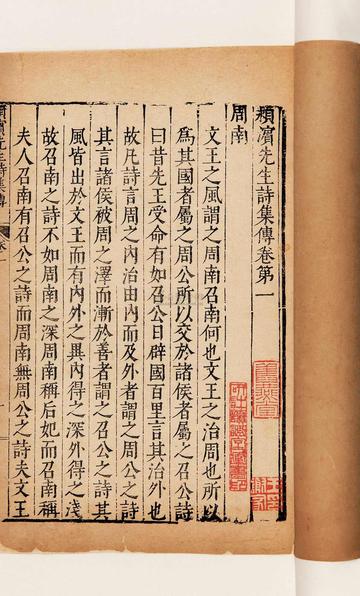 潁濱先生詩集傳卷第一
周南
文王之風謂之周南召南何也文王之治周也所以
爲其國者屬之周公所以交於諸侯者屬之召公詩
曰昔先王受命有如召公日辟國百里言其治外也
故凡詩言周之內治由內而及外者謂之周公之詩
其言諸侯被周之澤而漸於善者謂之召公之詩其
風皆出於文王而有內外之異內得之深外得之淺
故召南之詩不如周南之深周南稱后妃而召南稱
夫人召南有召公之詩而周南無周公之詩夫文王